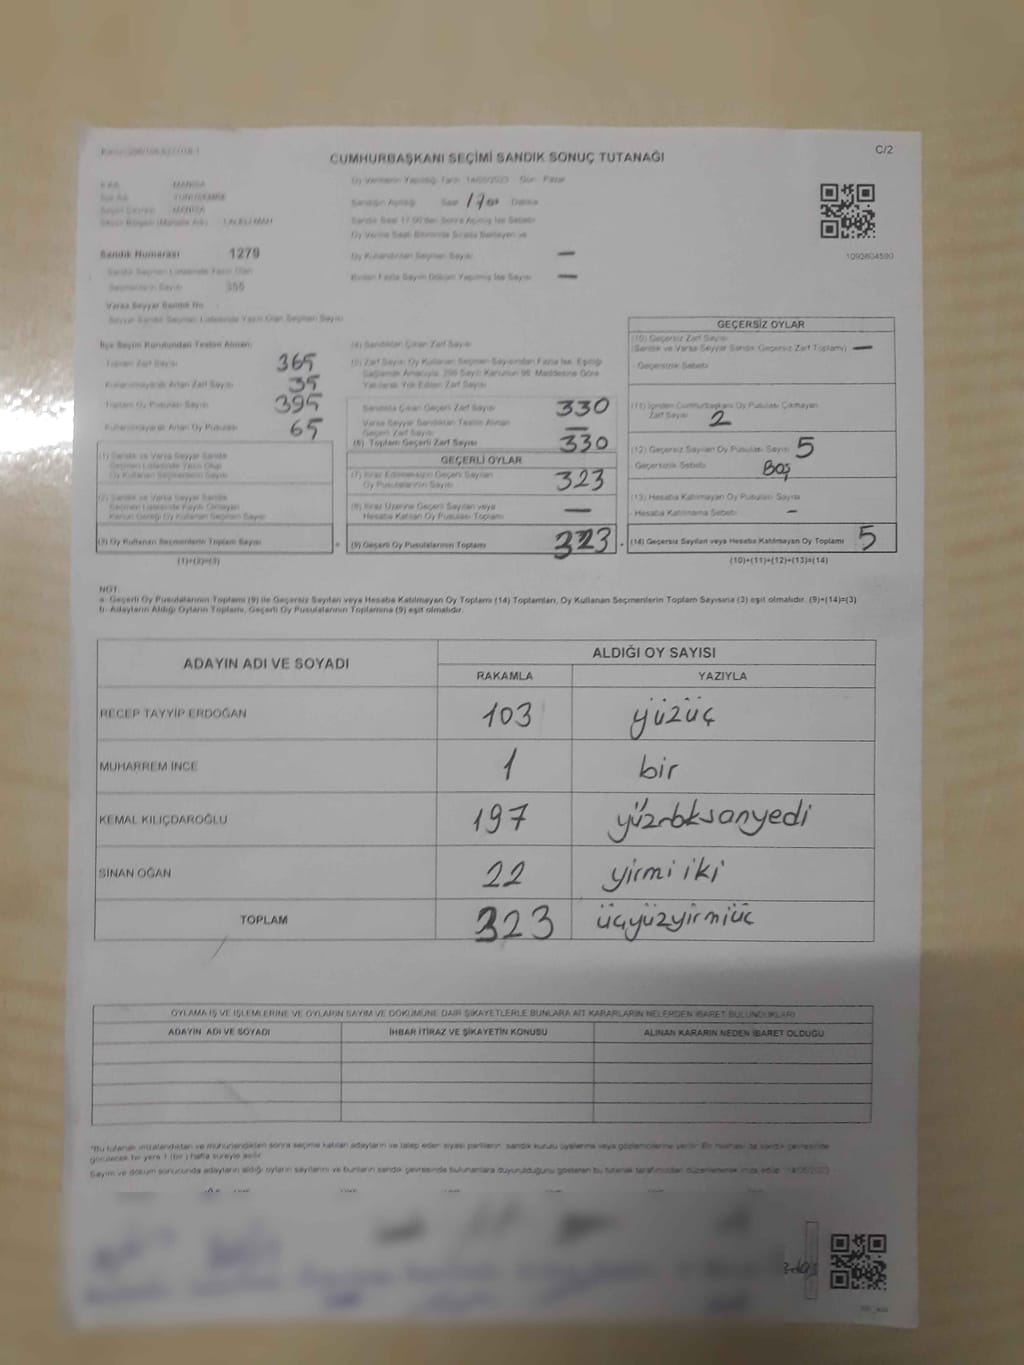 C/2
CUMHURBAŞKANI SEÇİMİ SANDIK SONUÇ TUTANAĞI
Oy Vermenin Yapıldığı Tarih 14/05/2023 Gün Pazar
MANİSA
YUNUSEMRE
MANİSA
Sandığın Açıldığı Saat 17 00 Dakika
LALELİ MAH
Sandık Numarası 1279
1092604590
Oy Kullandırılan Seçmen Sayısı —
Birden Fazla Sayım Döküm Yapılmış İse Sayısı —
Seçmenlerin Sayısı 355
Varsa Seyyar Sandık No
Seyyar Sandık Seçmen Listesinde Yazılı Olan Seçmen Sayısı
İlçe Seçim Kurulundan Teslim Alınan:
Toplam Zarf Sayısı 365
Kullanılmayarak Artan Zarf Sayısı 35
Toplam Oy Pusulası Sayısı 395
Kullanılmayarak Artan Oy Pusulası 65
(1) Sandık ve Varsa Seyyar Sandık
Seçmen Listesinde Yazılı Olup
Oy Kullanan Seçmenlerin Sayısı
(2) Sandık ve Varsa Seyyar Sandık
Seçmen Listesinde Kayıtlı Olmayan
Kanun Gereği Oy Kullanan Seçmen Sayısı
(3) Oy Kullanan Seçmenlerin Toplam Sayısı
(1)+(2)=(3)
(4) Sandıktan Çıkan Zarf Sayısı
(5) Zarf Sayısı Oy Kullanan Seçmen Sayısından Fazla İse, Eşitliği
Sağlamak Amacıyla, 298 Sayılı Kanunun 98. Maddesine Göre
Yakılarak Yok Edilen Zarf Sayısı
Sandıkta Çıkan Geçerli Zarf Sayısı 330
Varsa Seyyar Sandıktan Teslim Alınan
Geçerli Zarf Sayısı —
(6) Toplam Geçerli Zarf Sayısı 330
GEÇERLİ OYLAR
(7) İtiraz Edilmeksizin Geçerli Sayılan
Oy Pusulalarının Sayısı 323
(8) İtiraz Üzerine Geçerli Sayılan veya
Hesaba Katılan Oy Pusulası Toplamı —
(9) Geçerli Oy Pusulalarının Toplamı 323
GEÇERSİZ OYLAR
(10) Geçersiz Zarf Sayısı
(Sandık ve Varsa Seyyar Sandık Geçersiz Zarf Toplamı) —
- Geçersizlik Sebebi
(11) İçinden Cumhurbaşkanı Oy Pusulası Çıkmayan
Zarf Sayısı 2
(12) Geçersiz Sayılan Oy Pusulası Sayısı 5
- Geçersizlik Sebebi Boş
(13) Hesaba Katılmayan Oy Pusulası Sayısı
- Hesaba Katılmama Sebebi –
(14) Geçersiz Sayılan veya Hesaba Katılmayan Oy Toplamı 5
(10)+(11)+(12)+(13)=(14)
NOT:
a- Geçerli Oy Pusulalarının Toplamı (9) ile Geçersiz Sayılan veya Hesaba Katılmayan Oy Toplamı (14) Toplamları, Oy Kullanan Seçmenlerin Toplam Sayısına (3) eşit olmalıdır. (9)+(14)=(3)
b- Adayların Aldığı Oyların Toplamı, Geçerli Oy Pusulalarının Toplamına (9) eşit olmalıdır.
ADAYIN ADI VE SOYADI ALDIĞI OY SAYISI
RAKAMLA YAZIYLA
RECEP TAYYİP ERDOĞAN 103 yüzüç
MUHARREM İNCE 1 bir
KEMAL KILIÇDAROĞLU 197
SİNAN OĞAN 22 yirmi iki
TOPLAM 323 üçyüzyirmiüç
OYLAMA İŞ VE İŞLEMLERİNE VE OYLARIN SAYIM VE DÖKÜMÜNE DAİR ŞİKAYETLERLE BUNLARA AİT KARARLARIN NELERDEN İBARET BULUNDUKLARI
ADAYIN ADI VE SOYADI İHBAR İTİRAZ VE ŞİKAYETİN KONUSU ALINAN KARARIN NEDEN İBARET OLDUĞU
*Bu tutanak imzalandıktan ve mühürlendikten sonra seçime katılan adayların ve talep eden siyasi partilerin sandık kurulu üyelerine veya gözlemcilerine verilir. Bir nüshası da sandık çevresinde
görülecek bir yere 1 (bir) hafta süreyle asılır.
Sayım ve döküm sonucunda adayların aldığı oyların sayılarını ve bunların sandık çevresinde bulunanlara duyurulduğunu gösteren bu tutanak tarafımızdan düzenlenerek imza edildi. 14/05/2023